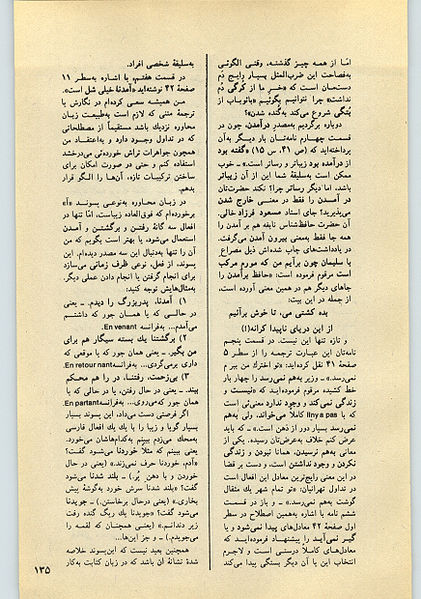 امّا از همه چیز گذشته، وقتی الگوئی
به‌فصاحت این ضرب‌المثل بسیار رایج دم
دستمان است که «خر ما از کرگی دُم
نداشت» چرا نتوانیم بگوئیم «بائوباب از
بتگی شروع می‌کند به‌گنده شدن»؟
دوباره برگردیم به‌مصدر درآمدن، چون در
قسمت چهارم نامه‌تان بار دیگر به‌آن
پرداخته‌اید که (ص ۳۱، س ۱۵) «گفته بود
از درآمده بود زیباتر و رساتر است.» - خوب
ممکن است به‌سلیقهٔ شما این از آن زیباتر
باشد، اما دیگر رساتر چرا؟ نکند حضرت‌تان
در آمدن را فقط در معنی خارج شدن
می‌پذیرید؟ جای استاد مسعود فرزاد خالی.
آن حضرت حافظ‌شناس نابغه هم بر آمدن را
همه جا فقط به‌معنی بیرون آمدن می‌گرفت.
در یادداشت‌های چاپ شده‌اش ذیل مصراع
با سلیمان چون برآیم من که مورم مرکب
است مرقوم فرموده است: «حافظ برآمدن را
جاهای دیگر هم در همین معنی آورده است،
از جمله در این بیت:
بده کشتی می، تا خوش برآئیم
از این دریای ناپیدا کرانه(!)
و تازه تنها این نیست. در قسمت پنجم
نامه‌تان این عبارت ترجمه را از سطر ۵
صفحهٔ ۴۱ نقل کرده‌اید: «تو اخترك من ببر م
نمی‌رسد.» - وزیر به‌هم نمی‌رسد را چهار بار
خط کشیده مرقوم فرموده‌اید که «نیست و
زندگی نمی‌کند و وجود ندارد معنی‌ئی است
که با ilnya pas کاملاً می‌خواند، ولی به‌هم
نمی‌رسد بسیار دور از ذهن است.» - که باید
عرض کنم خلاف به‌عرض‌تان رسیده. یکی از
معانی به‌هم نرسیدن، همانا نبودن و زندگی
نکردن و وجود نداشتن است، و دست بر قضا
در این معنی رایج‌ترین معادل این افعال است
در تداول تهرانیان: «تو تمام شهر یك مثقال
گوشت به‌هم نمی‌رسد.» - و باز در قسمت
ششم نامه با اشاره به‌همین اصطلاح در سطر
اول صفحهٔ ۴۲ معادل‌های پیدا نمی‌شود و یا
گیر نمی‌آید را پیشنهاد فرموده‌اید که
معادل‌های کاملاً درستی است و لاجرم
انتخاب این یا آن دیگر بستگی پیدا می‌کند
به‌سلیقهٔ شخصی افراد.
در قسمت هفتم، با اشاره به‌سطر ۱۱
صفحهٔ ۴۲ نوشته‌اید «آمدنا خیلی شل است».
من همیشه سعی کرده‌ام در نگارش یا
ترجمهٔ متنی که لازم است به‌طبیعت زبان
محاوره نزدیك باشد مستقیماً از مصطلحاتی
که در تداول وجود دارد و به‌اعتقاد من
همچون جواهرات تراش خورده‌ئی می‌درخشد
استفاده کنم و حتی در صورت امکان برای
ساختن ترکیبات تازه، آن‌ها را الگو قرار
بدهم.
در زبان محاوره به‌نوعی پسوند «آ»
برخورده‌ام که فوق‌العاده زیباست. امّا تنها در
افعال سه گانهٔ رفتن و برگشتن و آمدن
استعمال می‌شود، یا بهتر است بگویم که من
آن را تنها به‌دنبال این سه مصدر دیده‌ام. این
پسوند، از فعل، نوعی ظرف زمانی می‌سازد
برای انجام گرفتن یا انجام دادن عملی دیگر.
به‌مثال‌هایش توجه کنید:
۱) آمدنا، پدربزرگ را دیدم. - یعنی
در حالی که یا همان جور که داشتم
می‌آمدم... به‌فرانسه En venant.
۲) برگشتنا یك بسته سیگار هم برای
من بگیر. - یعنی همان جور که یا موقعی که
داری برمی‌گردی... به‌فرانسه En retournant.
۳) بی‌زحمت، رفتنا، در را هم محکم
ببند - یعنی در حال رفتن، یا در حالی که یا
همان جور که می‌روی... به‌فرانسه En partant.
اگر فرصتی دست می‌داد، این پسوند بسیار
بسیار گویا و زیبا را با یك یك افعال فارسی
به‌محك می‌زدم ببینم به‌کدام‌هاشان می‌خورد.
یعنی ببینم که مثلاً خوردنا می‌شود گفت؟
«آدم، خوردنا حرف نمی‌زند.» (یعنی در حال
خوردن و با دهن پُر.) - بلند شدنا می‌شود
گفت؟ «بلند شدنا سرش خورد به‌گوشهٔ پیش
بخاری.» (یعنی درحال برخاستن.) - جویدنا
می‌شود گفت؟ «جویدنا یك ریگ گنده رفت
زیر دندانم.» (یعنی همچنان که لقمه را
می‌جویدم.) - و جز این‌ها...
همچنین بعید نیست که این‌پسوند خلاصه
شدهٔ نشانهٔ آن باشد که در زبان کتابت به‌کار
۱۳۵